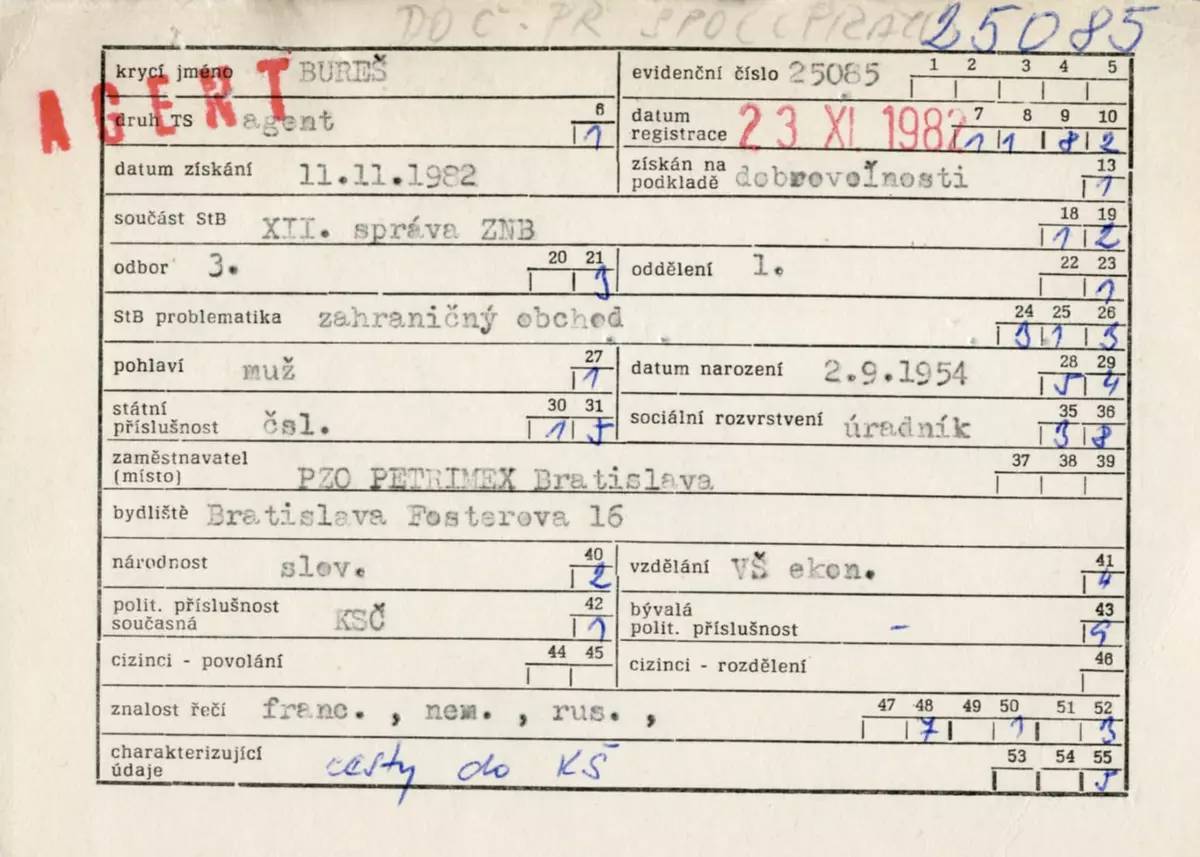 DOČ. PR SPOLUPRACU 25085
AGENT
krycí jméno BUREŠ evidenční číslo 25085 1 2 3 4 5
druh TS agent 6 1 datum registrace 23 XI. 1982 7 8 9 10 1 1 8 2
datum získání 11.11.1982 získán na podkladě dobrovoľnosti 13 1
součást StB XII. správa ZNB 18 19 1 2
odbor 3. 20 21 3 oddělení 1. 22 23 1
StB problematika zahraničný obchod 24 25 26 3 1 3
pohlaví muž 27 1 datum narození 2.9.1954 28 29 5 4
státní příslušnost čsl. 30 31 1 5 sociální rozvrstvení úradník 35 36 3 8
zaměstnavatel (místo) PZO PETRIMEX Bratislava 37 38 39
bydliště Bratislava Fosterova 16
národnost slov. 40 2 vzdělání VŠ ekon. 41 4
polit. příslušnost současná KSČ 42 1 bývalá polit. příslušnost - 43 9
cizinci - povolání 44 45 cizinci - rozdělení 46
znalost řečí franc. , nem. , rus. , 47 48 49 50 51 52 7 1 3
charakterizující údaje cesty do KŠ 53 54 55 5